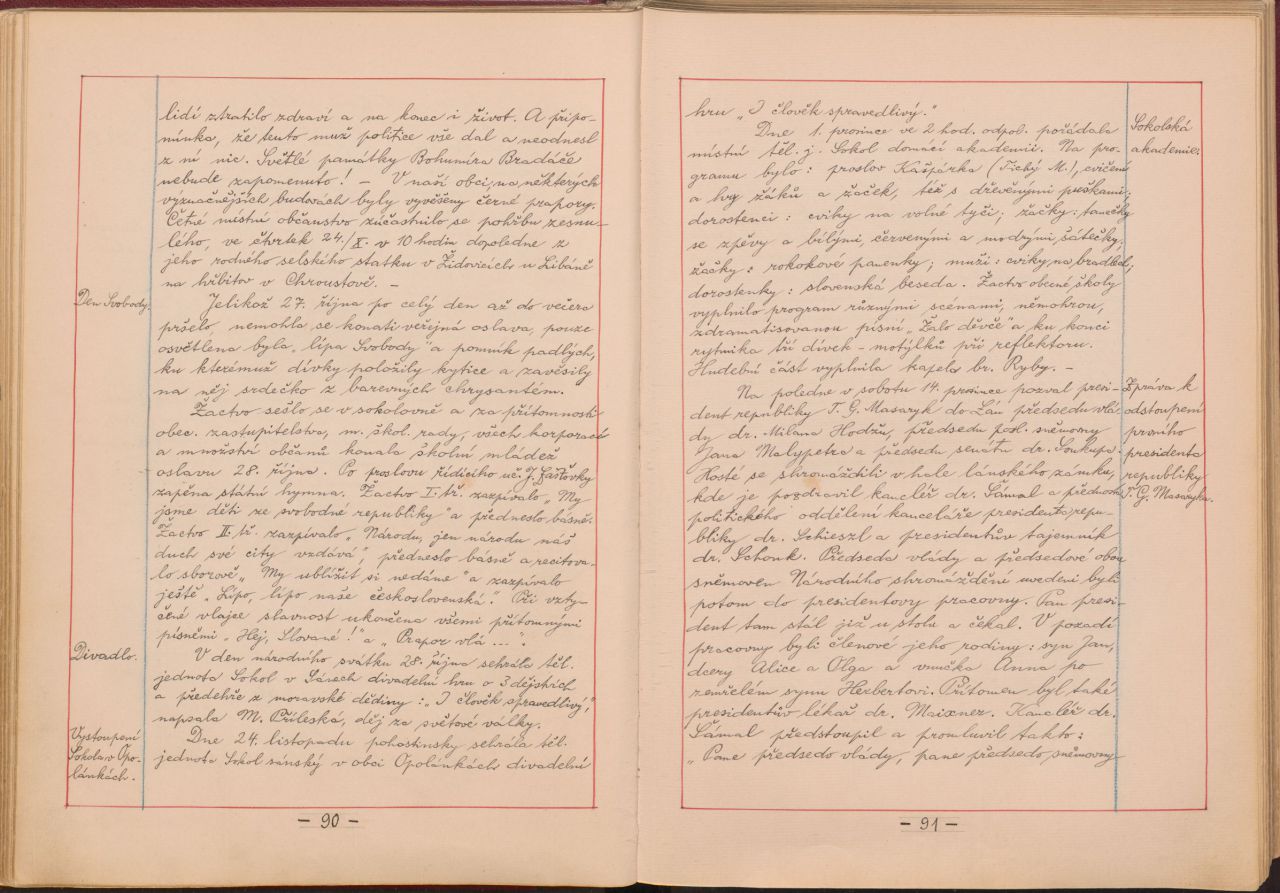 lidí ztratilo zdraví a na konec i život. A připo-
mínka, že tento muž politice vše dal a neodnesl
z ní nic. Světlé památky Bohumíra Bradáče
nebude zapomenuto! – V naší obci, na některých
význačnějších budovách byly vyvěšeny černé prapory.
Četné místní občanstvo zúčastnilo se pohřbu zesnu-
lého, ve čtvrtek 24./X. v 10 hodin dopoledne z
jeho rodného selského statku v Židovicích u Libáně
na hřbitov v Chroustově. –
Den Svobody.
Jelikož 27. října po celý den až do večera
pršelo, nemohla se konati veřejná oslava, pouze
osvětlena byla „lípa Svobody" a pomník padlých,
ku kterémuž dívky položily kytice a zavěsily
na něj srdéčko z barevných chrysantém.
Žactvo sešlo se v sokolovně a za přítomnosti
obec. zastupitelstva, m. škol. rady, všech korporací
a množství občanů konala školní mládež
oslavu 28. října. Po proslovu řídícího uč. J. Laštovky
zapěna státní hymna. Žactvo I. tř. zazpívalo „My
jsme děti ze svobodné republiky" a předneslo básně.
Žactvo II. tř. zazpívalo „Národu, jen národu náš
duch své city vzdává", předneslo básně a recitova-
lo sborově „My ublížit si nedáme" a zazpívalo
ještě „Lípo, lípo naše československá". Při vzty-
čené vlajce slavnost ukončena všemi přítomnými
písněmi „Hej, Slované!" a „Prapor vlá ...".
Divadlo.
V den národního svátku 28. října sehrála těl.
jednota Sokol v Sánech divadelní hru o 3 dějstvích
a předehře z moravské dědiny: „I člověk spravedlivý",
napsala M. Příleská, děj za světové války.
Vystoupení
Sokola v Opo-
lánkách.
Dne 24. listopadu pohostinsky sehrála těl.
jednota Sokol sánský v obci Opolánkách divadelní
– 90 –
hru „I člověk spravedlivý."
Sokolská
akademie.
Dne 1. prosince ve 2 hod. odpol. pořádala
místní těl. j. Sokol domácí akademii. Na pro-
gramu bylo: proslov Kašpárka (Tichý M.), cvičení
a hry žáků a žaček, též s dřevěnými puškami;
dorostenci: cviky na volné tyči; žačky: tanečky
se zpěvy a bílými, červenými a modrými šátečky;
žačky: rokokové panenky; muži: cviky na bradlech;
dorostenky: slovenská beseda. Žactvo obecné školy
vyplnilo program různými scénami, němohrou,
zdramatisovanou písní „Žalo děvče" a ku konci
rytmika tří dívek – motýlků při reflektoru.
Hudební část vyplnila kapela br. Ryby. –
Zpráva k
odstoupení
prvního
presidenta
republiky
T. G. Masaryka.
Na poledne v sobotu 14. prosince pozval presi-
dent republiky T. G. Masaryk do Lán předsedu vlá-
dy dr. Milana Hodžu, předsedu posl. sněmovny
Jana Malypetra a předsedu senátu dr. Soukupa.
Hosté se shromáždili v hale lánského zámku,
kde je pozdravil kancléř dr. Šámal a přednosta
politického oddělení kanceláře presidenta repu-
bliky dr. Schieszl a presidentův tajemník
dr. Schenk. Předseda vlády a předsedové obou
sněmoven Národního shromáždění uvedeni byli
potom do presidentovy pracovny. Pan presi-
dent tam stál již u stolu a čekal. V pozadí
pracovny byli členové jeho rodiny: syn Jan,
dcery Alice a Olga a vnučka Anna po
zemřelém synu Herbertovi. Přítomen byl také
presidentův lékař dr. Maixner. Kancléř dr.
Šámal předstoupil a promluvil takto:
„Pane předsedo vlády, pane předsedo sněmovny
– 91 –